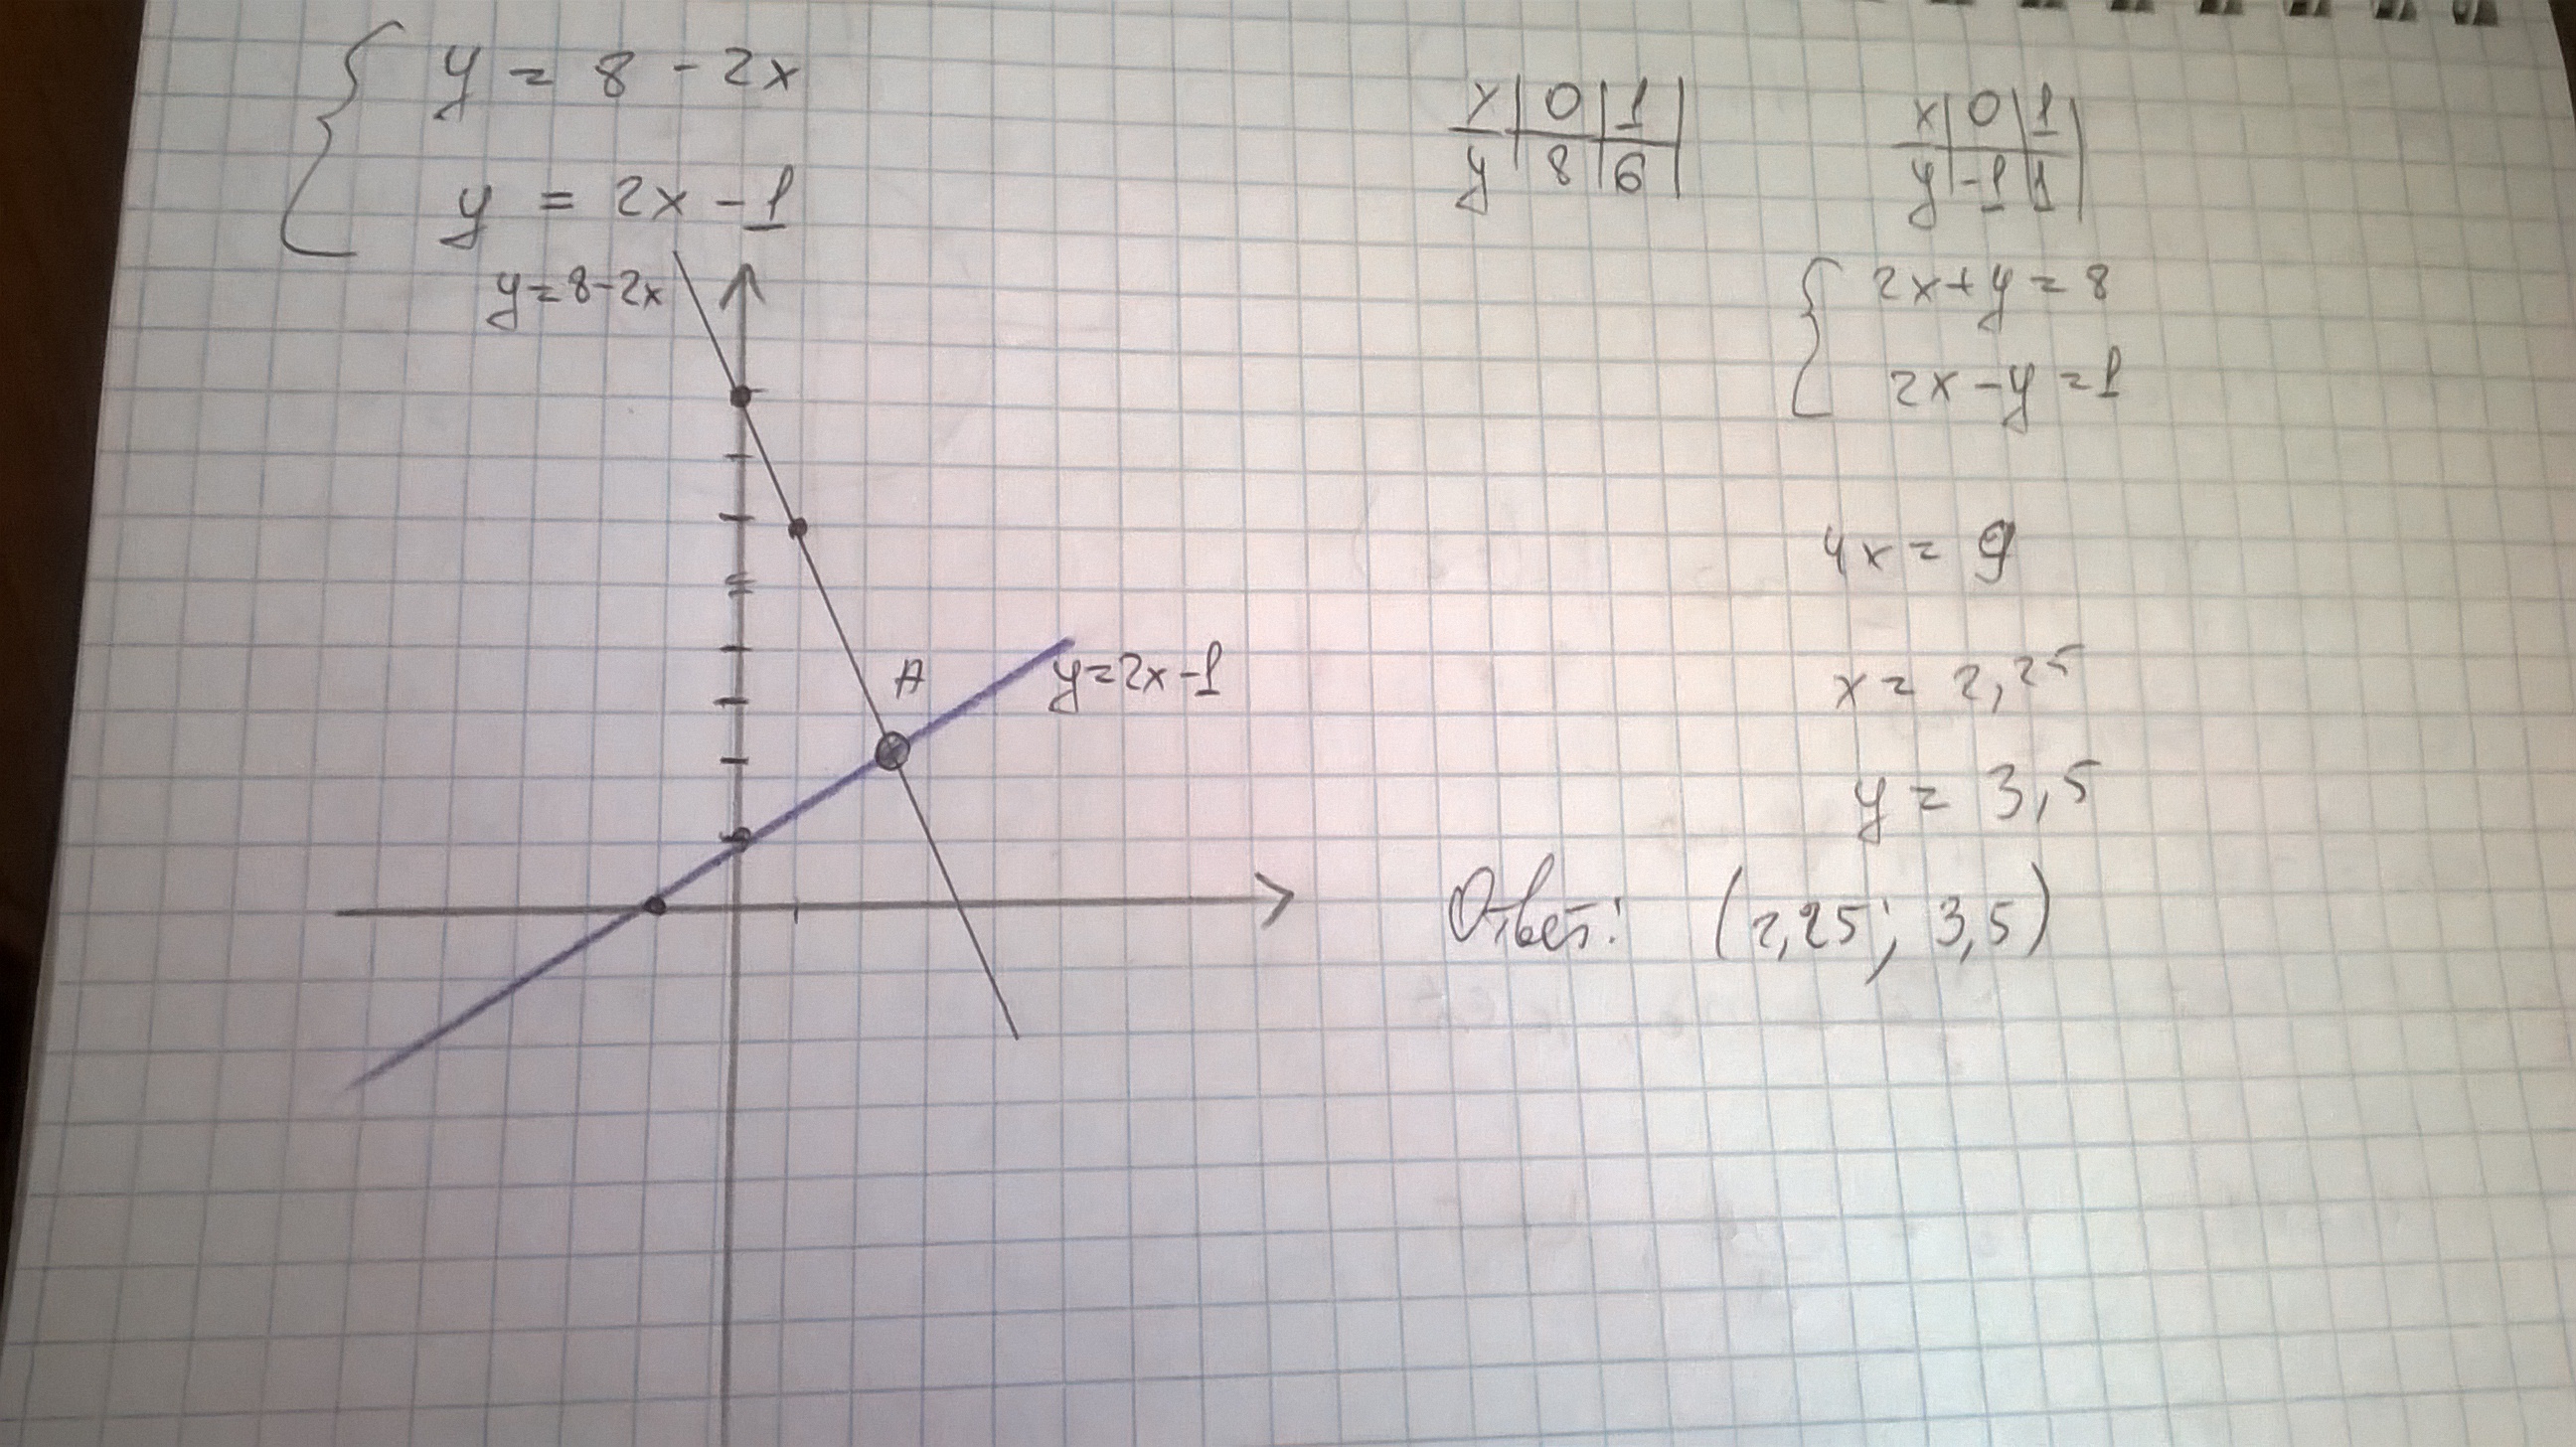 y = 8 - 2x
y = 2x - 1
y = 8 - 2x
A
y = 2x - 1
x | 0 | 1 |
y | 8 | 6 |
x | 0 | 1 |
y | -1 | 1 |
2x + y = 8
2x - y = 1
4x = 9
x = 2,25
y = 3,5
Ответ: (2,25; 3,5)